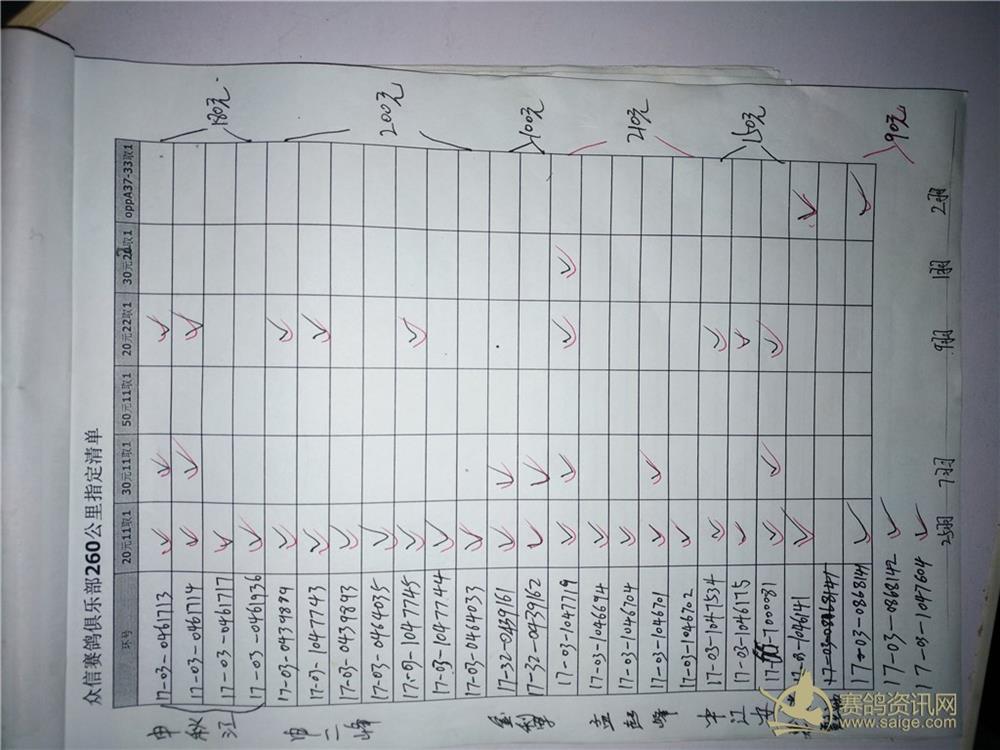 众信赛鸽俱乐部260公里指定清单
环号 20元11取1 30元11取1 50元11取1 20元22取1 30元20取1 oppA37-33取1
申秋江
17-03-0461713
17-03-0461714
17-03-0461717
17-03-0461926
180元
17-03-0439889
17-03-1047743
17-03-0439893
17-03-0464035
17-03-1047745
17-03-1047744
17-03-0464033
200元
17-32-0439161
17-32-0439162
100元
17-03-1047719
17-03-1046694
17-03-1046704
17-03-1046701
17-03-1046702
210元
17-03-1047534
17-03-1046175
-700081
150元
17-03-1046141
17-03-0868141
17-03-0868142
17-03-1047604
90元
25羽 7羽 9羽 1羽 2羽
赛鸽资讯网
www.saige.com